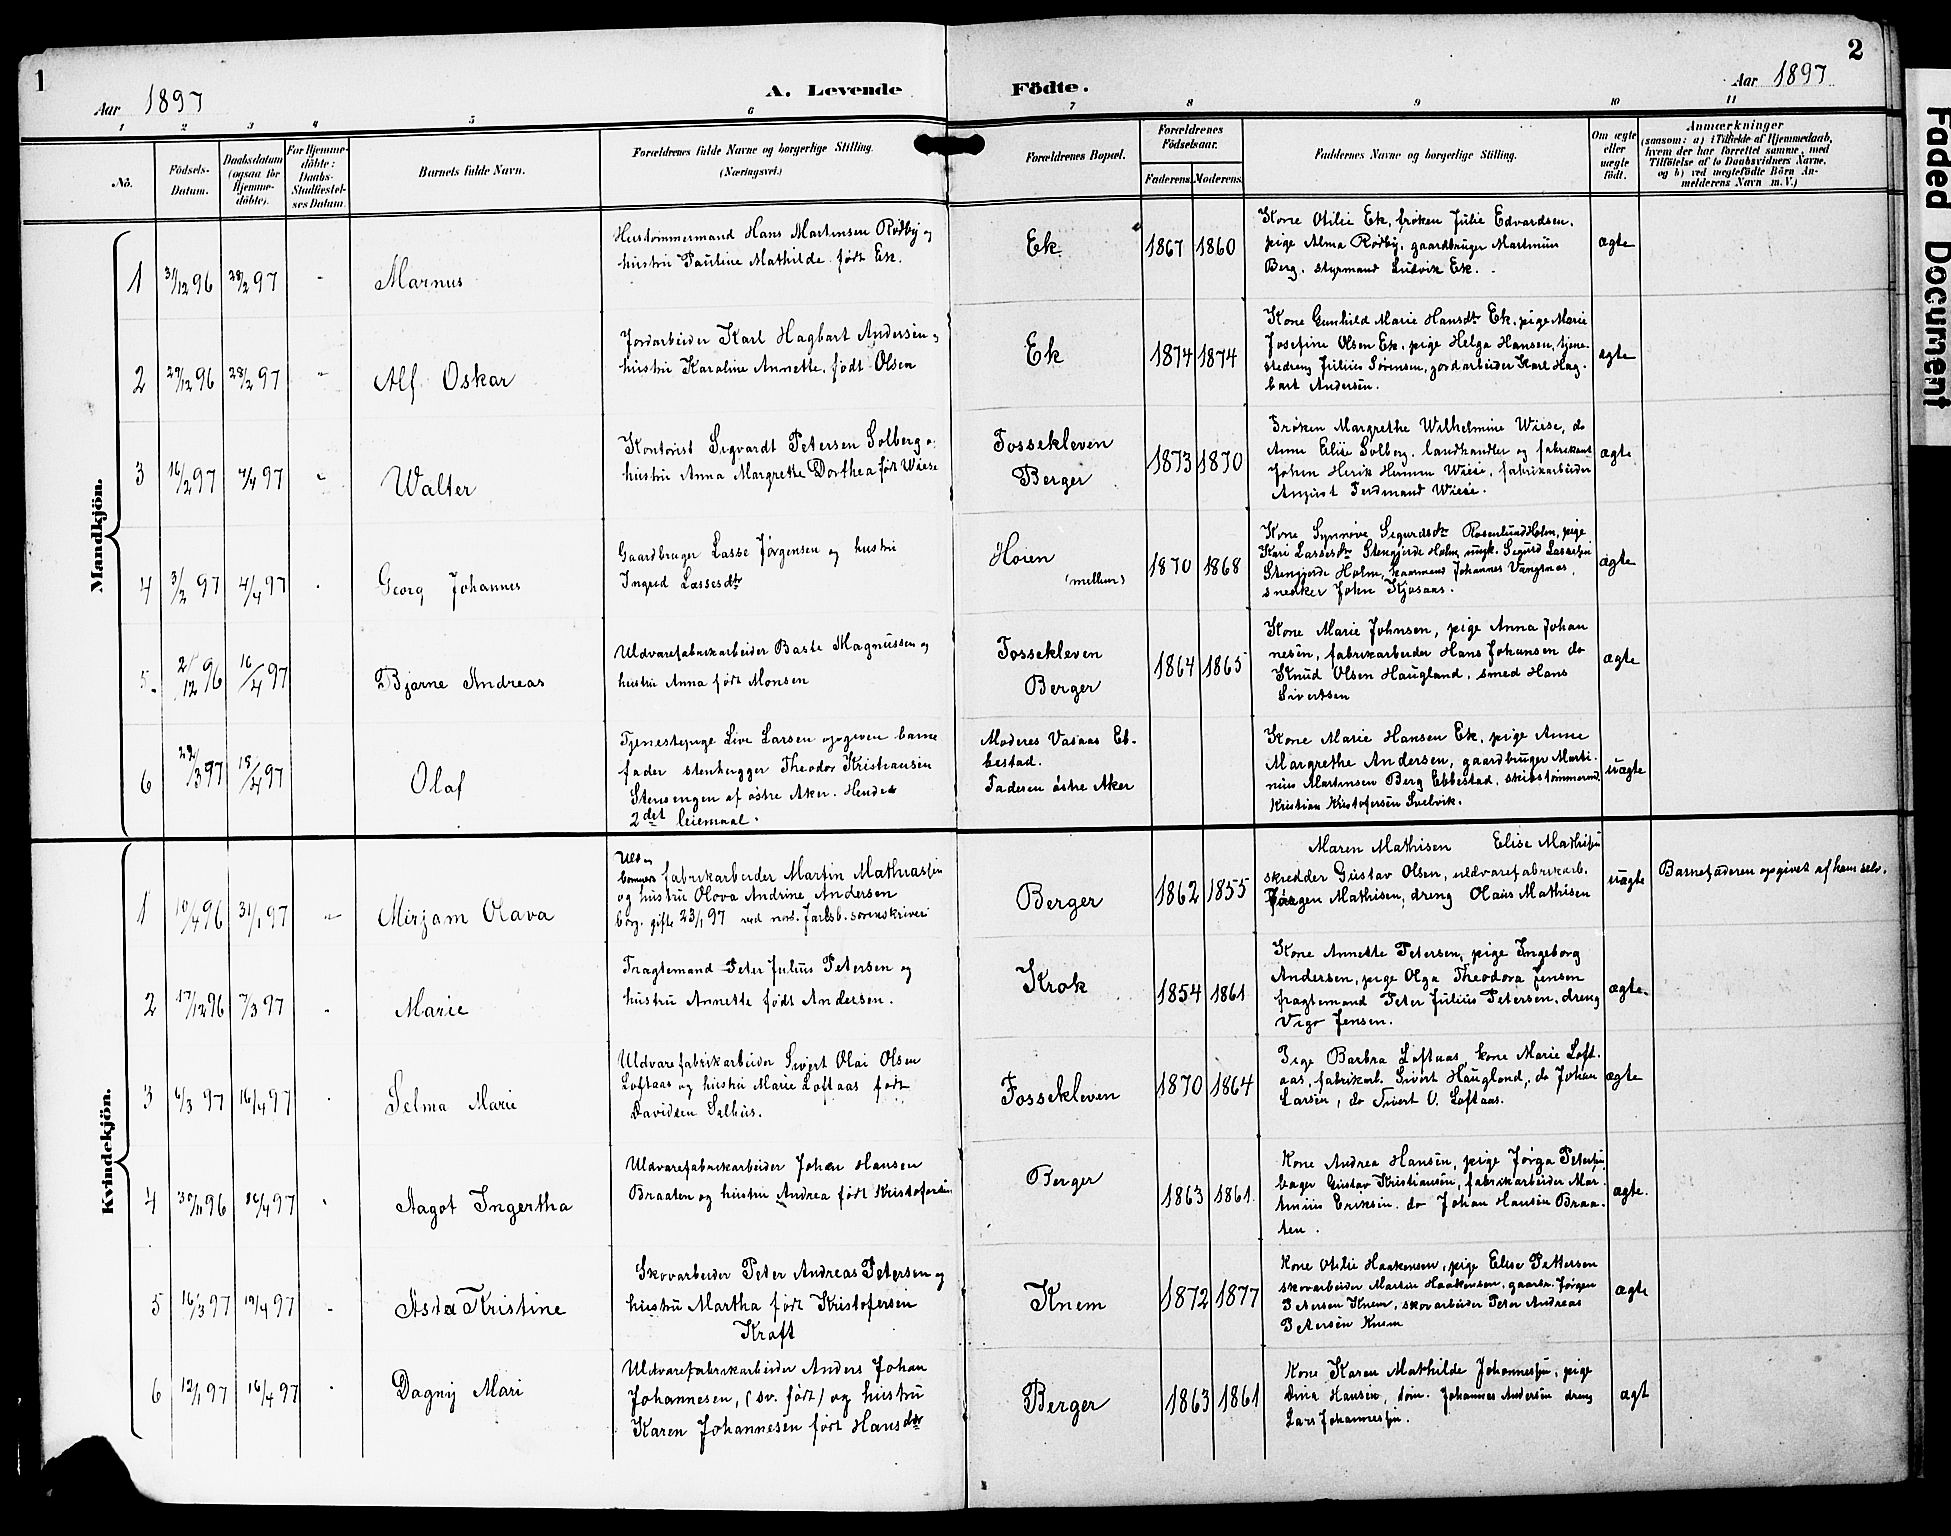 1
Aar 1897
A. Levende
Födte.
Aar 1897
2
1 2 3 4 5 6 7 8 9 10 11
No.
Födsels-
Datum.
Daabsdatum
(ogsaa för
Hjemme-
döbte).
For Hjemme-
döbte:
Daabs-
Stadfæstel-
ses Datum.
Barnets fulde Navn.
Forældrenes fulde Navne og borgerlige Stilling.
(Næringsvei.)
Forældrenes Bopæl.
Forældrenes
Födselsaar.
Faderens. Moderens.
Faddernes Navne og borgerlige Stilling.
Om ægte
eller
uægte
födt.
Anmærkninger
(saasom: a) i Tilfælde af Hjemmedaab,
hvem der har forrettet samme, med
Tilföielse af to Daabsvidners Navne,
og b) ved uægtefödte Börn An-
melderens Navn m. V.)
Faded Document
Mandkjön.
1 31/12 96 28/2 97 " Marnus
Hustømmermand Hans Martinsen Rødby og
hustru Pauline Mathilde født Ek.
Ek 1867 1860
Kone Otilie Ek, frøken Julie Edvardsen,
pige Alma Rødby, gaardbruger Martinius
Berg, styrmand Ludvik Ek.
ægte
2 29/12 96 28/2 97 " Alf Oskar
Jordarbeider Karl Hagbart Andersen og
hustru Karoline Annette, født Olsen
Ek 1874 1874
Kone Gunhild Marie Hansdt Ek, pige Marie
Josefine Olsen Ek, pige Helga Hansen, tjene-
stedreng Julius Sørensen, jordarbeider Karl Hag-
bart Andersen.
ægte
3 16/2 97 4/4 97 " Walter
Kontorist Sigvardt Petersen Solberg o.
hustru Anna Margrethe Dorthea født Wiese
Fossekleven
Berger
1873 1870
Frøken Margrethe Wilhelmine Wiese, do
Anne Elise Solberg, landhandler og fabrikant
Johan Henrik Wiese, fabrikarbeider
August Ferdinand Wiese.
ægte
4 3/2 97 4/4 97 Georg Johannes
Gaardbruger Lasse Jørgensen og hustru
Ingrid Lassesdtr
Høien
(mellem)
1870 1868
Kone Synnøve Sigurdsdt Rosenlund Holm, pige
Kari Lassesdtr Stengjorde Holm, ungk. Sigurd Lassesen
Stengjorde Holm, Johannes Vangsnes,
snedker John Kjosaas.
ægte
5 21/12 96 16/4 97 Bjarne Andreas
Uldvarefabrikarbeider Baste Magnussen og
hustru Anna født Monsen
Fossekleven
Berger
1864 1865
Kone Marie Johnsen, pige Anna Johan
nesen, fabrikarbeider Hans Johansen do
Knud Olsen Haugland, smed Hans
Sivertsen
ægte
6 22/3 97 18/4 97 Olaf
Tjenestepige Live Larsen opgiven barne
fader stenhugger Theodor Kristiansen
Stensengen af østre Aker. Hendes
2det leiermaal.
Moderes Vasaas Eb-
bestad.
Faderen østre Aker
Kone Marie Hansen Ek, pige Anne
Margrethe Andersen, gaardbruger Marti-
nius Martinsen Berg Ebbestad, skibstømmermd
Kristian Kristofersen Svelvik.
uægte
Kvindekjön.
1 10/4 96 31/1 97 " Mirjam Olava
Uldv
fabrikarbeider Martin Mathiassen
og hustru Olova Andrine Andersen
borg. gifte 23/1 97 ved nord. Jarlsb. sorenskriveri
Berger 1862 1855
Maren Mathisen Elise Mathisen
skredder Gustav Olsen, uldvarefabrikarb.
Jørgen Mathisen, dreng Olaus Mathisen
uægte
Barnefaderen opgivet af ham selv.
2 17/12 96 7/3 97 Marie
Fragtemand Peter Julius Petersen og
hustru Annette født Andersen.
Krok 1854 1861
Kone Annette Petersen, pige Ingeborg
Andersen, pige Olga Theodora Jensen
fragtemand Peter Julius Petersen, dreng
Vigo Jensen.
ægte.
3 6/3 97 16/4 97 Selma Marie
Uldvarefabrikarbeider Sivert Olai Olsen
Loftaas og hustru Marie Loftaas født
Davidsen Salhus.
Fossekleven 1870 1864
Pige Barbra Loftaas, kone Marie Loft-
aas, fabrikarb. Sivert Haugland, do Johan
Larsen, do Sivert O. Loftaas.
ægte
4 30/11 96 16/4 97 Aagot Ingertha
Uldvarefabrikarbeider Johan Hansen
Braaten og hustru Andrea født Kristofersen
Berger 1863 1861
Kone Andrea Hansen, pige Jørga Petersen
bager Gustav Kristiansen, fabrikarbeider Mar-
tinius Eriksen, do Johan Hansen Braa-
ten.
ægte.
5 16/3 97 19/4 97 Asta Kristine
Skovarbeider Peter Andreas Petersen og
hustru Martha født Kristofersen
Kraft
Knem 1872 1877
Kone Otilie Haakensen, pige Elise Pettersen
skovarbeider Martin Haakensen, gaardbr. Jørgen
Petersen Knem, skovarbeider Peter Andreas
Petersen Knem
ægte
6 12/1 97 16/4 97 Dagny Mari
Uldvarefabrikarbeider Anders Johan
Johannesen, (sv. født) og hustru
Karen Johannesen født Hansdtr
Berger 1863 1861
Kone Karen Mathilde Johannesen, pige
Dina Hansen, Johannes Andersen dreng
Lars Johannesen.
ægt